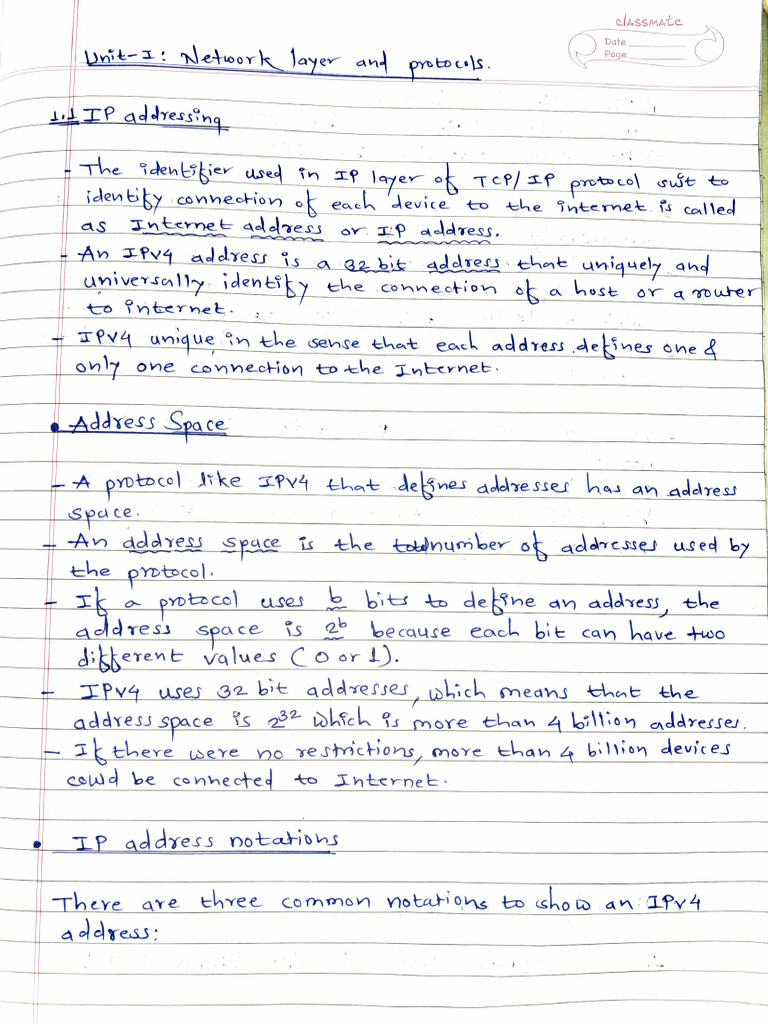 classmate
Date
Page
Unit-I: Network layer and protocols.
1.1 IP addressing
- The identifier used in IP layer of TCP/IP protocol suit to
identify connection of each device to the internet is called
as Internet address or IP address.
- An IPV4 address is a 32 bit address that uniquely and
universally identify the connection of a host or a router
to internet.
- IPV4 unique in the sense that each address defines one &
only one connection to the Internet.
• Address Space
- A protocol like IPV4 that defines addresses has an address
space.
- An address space is the number of addresses used by
the protocol.
- If a protocol uses b bits to define an address, the
address space is 2ᵇ because each bit can have two
different values (0 or 1).
- IPV4 uses 32 bit addresses, which means that the
address space is 2³² which is more than 4 billion addresses.
- If there were no restrictions, more than 4 billion devices
could be connected to Internet.
• IP address notations
There are three common notations to show an IPV4
address: